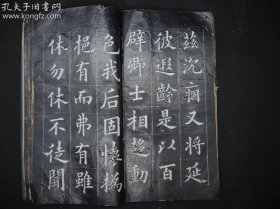 孔夫子旧书网
茲沉痼又将延
彼遐齡是以百
辟卿士相趍動
色我后固懷撝
挹有而弗有雖
休勿休不徒聞